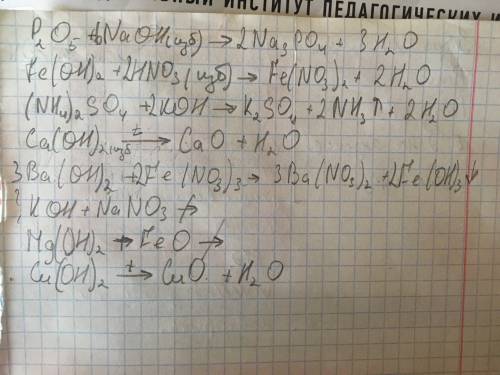 ИНСТИТУТ ПЕДАГОГИЧЕСКИХ
P₂O₅ + 6NaOH(изб) → 2Na₃PO₄ + 3H₂O
Fe(OH)₂ + 2HNO₃(изб) → Fe(NO₃)₂ + 2H₂O
(NH₄)₂SO₄ + 2KOH → K₂SO₄ + 2NH₃↑ + 2H₂O
Ca(OH)₂ изб →t CaO + H₂O
3Ba(OH)₂ + 2Fe(NO₃)₃ → 3Ba(NO₃)₂ + 2Fe(OH)₃↓
KOH + NaNO₃ ↛
Mg(OH)₂ + FeO ↛
Cu(OH)₂ →t CuO + H₂O